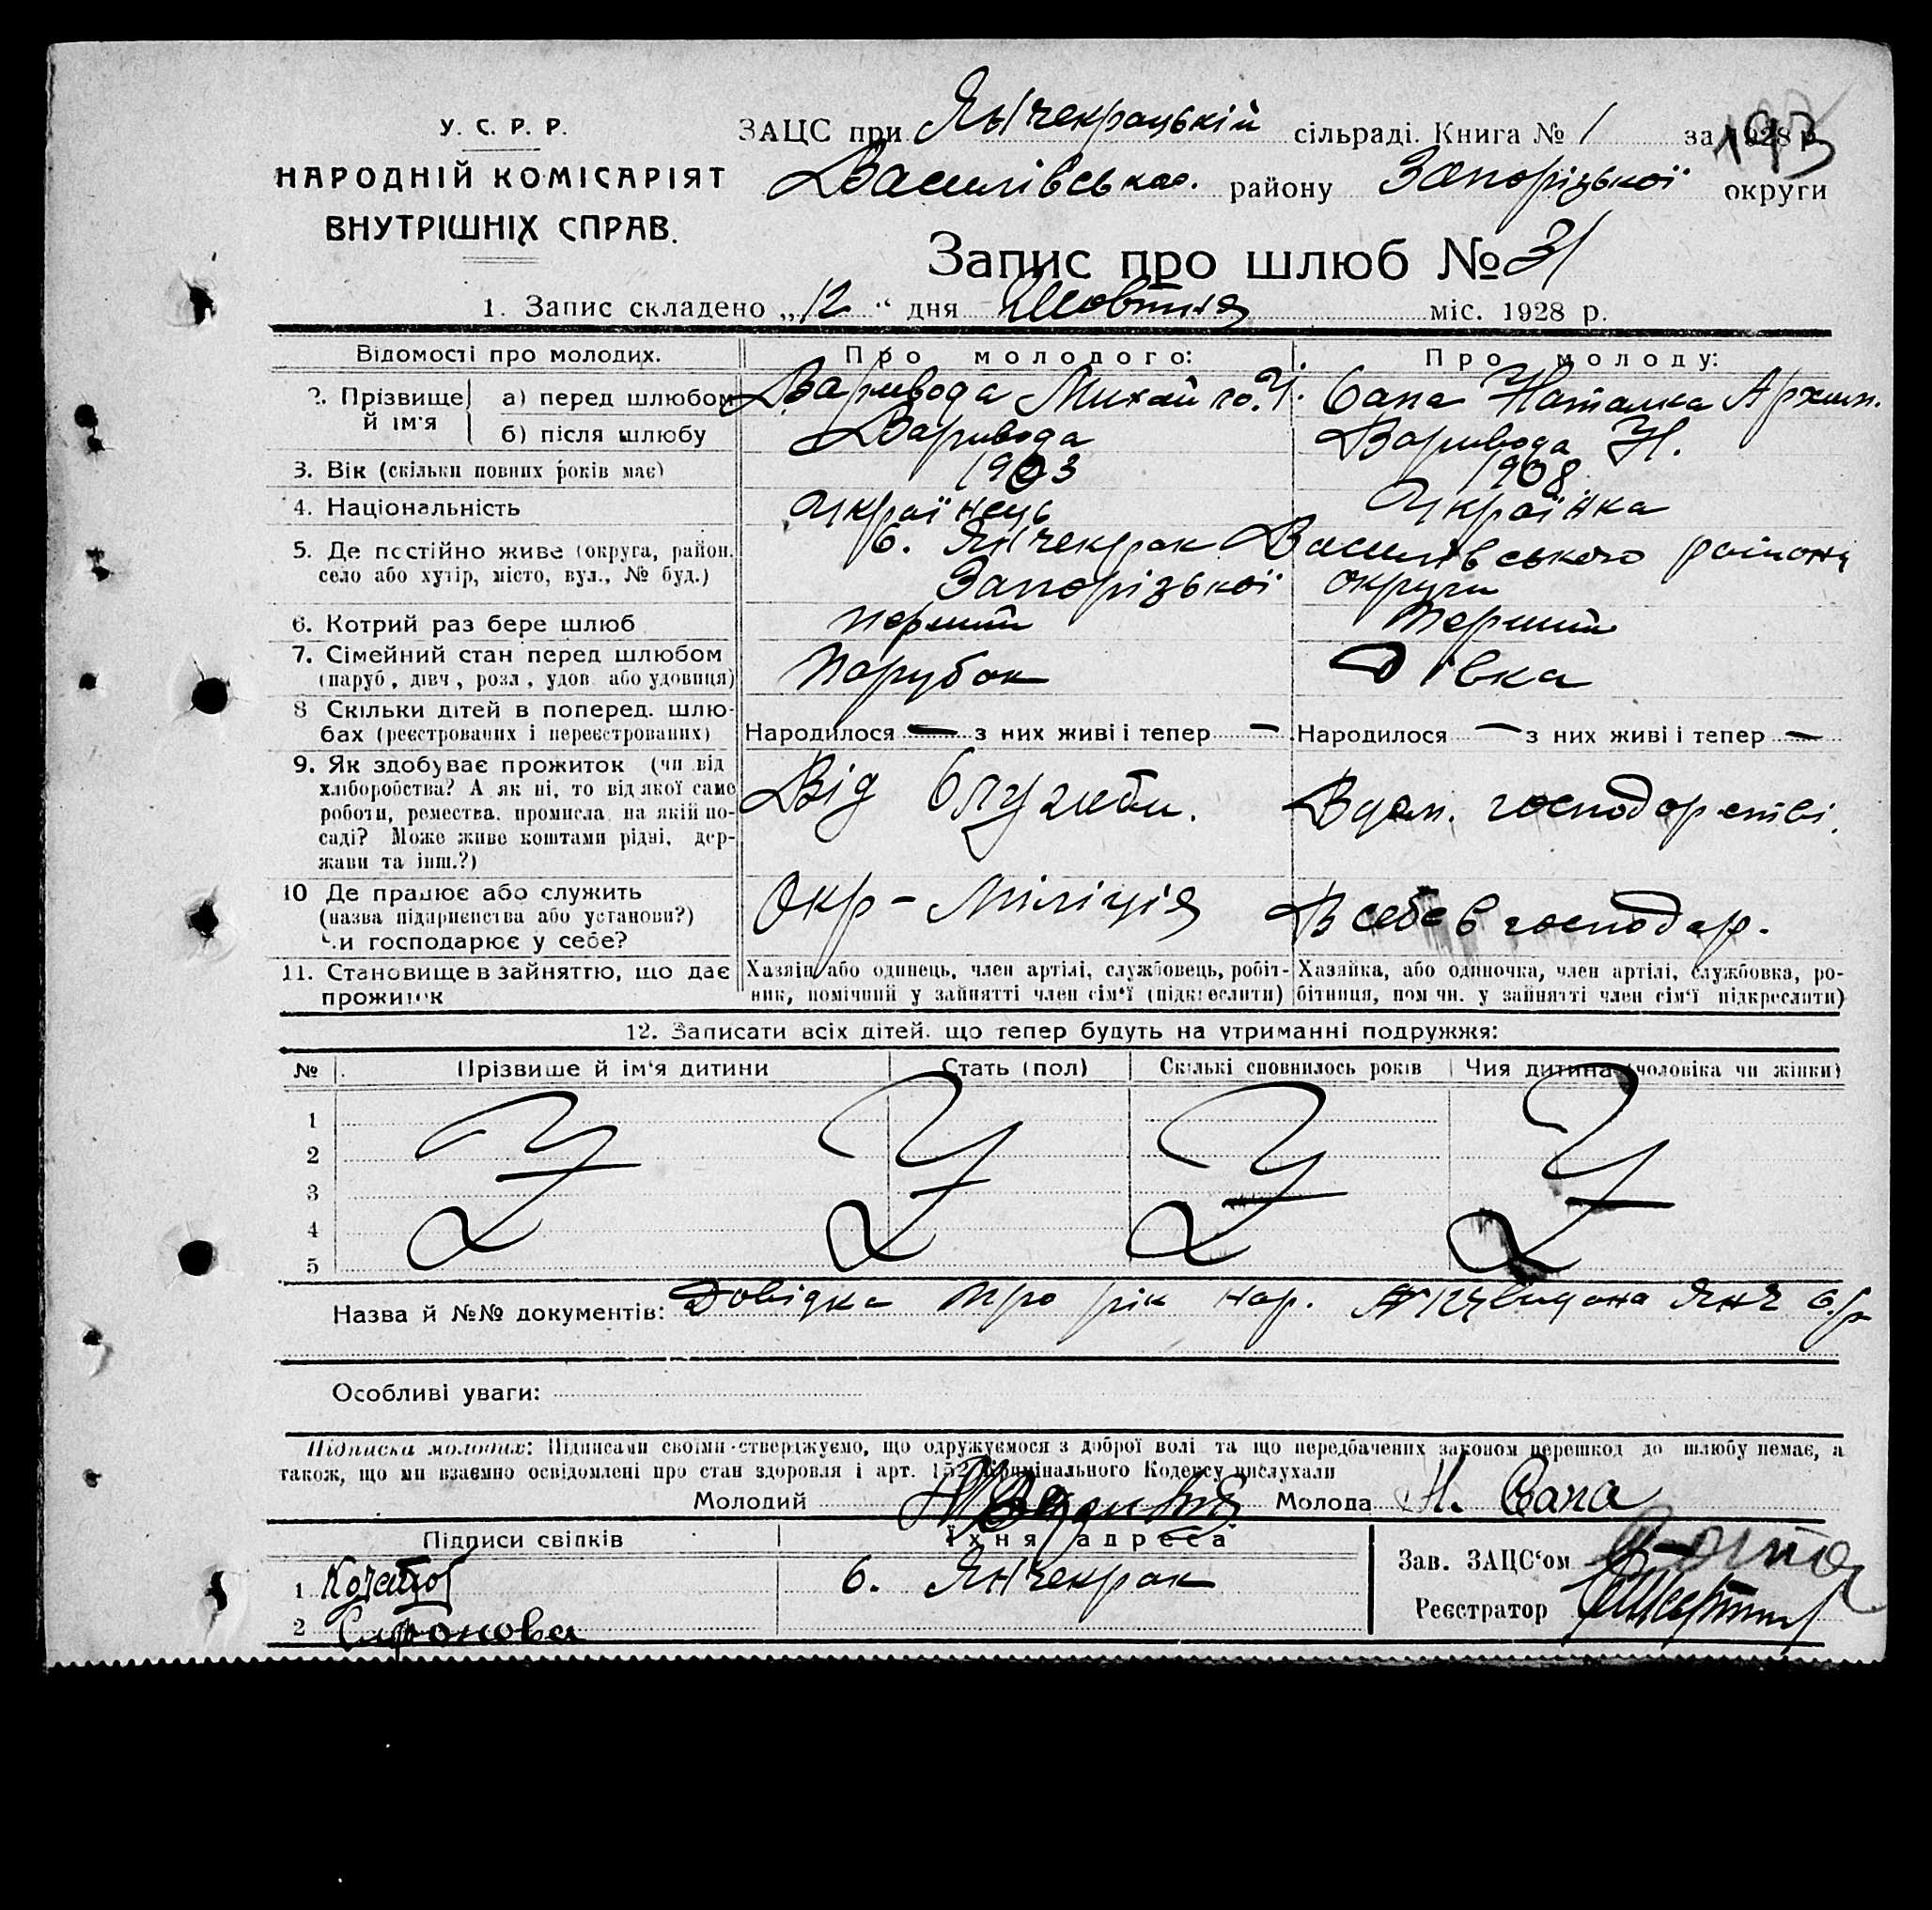 У. С. Р. Р.
НАРОДНІЙ КОМІСАРІЯТ
ВНУТРІШНІХ СПРАВ.
ЗАЦС при Янчекрацькій сільраді. Книга № 1 за 1928 р.
193
Василівськ. району Запорізької округи
Запис про шлюб № 31
1. Запис складено „12“ дня Жовтня міс. 1928 р.
Відомості про молодих. Про молодого: Про молоду:
2. Прізвище й ім'я а) перед шлюбомВаривода Михайло. Сапа Наталка Архип.
б) після шлюбу Варивода Варивода Н.
3. Вік (скільки повних років має) 1903 1908
4. Національність Українець Українка
5. Де постійно живе (округа, район, С. Янчекрак Василівського району
село або хутір, місто, вул., № буд.) Запорізької округи
6. Котрий раз бере шлюб перший перший
7. Сімейний стан перед шлюбом Парубок Дівка
(паруб., дівч., розл., удов. або удовиця)
8 Скільки дітей в поперед. шлю-
бах (реєстрованих і нереєстрованих) Народилося — з них живі і тепер — Народилося — з них живі і тепер —
9. Як здобуває прожиток (чи від
хліборобства? А як ні, то від якої саме Від Служби. В дом. господорстві.
роботи, ремества, промисла, на якій по-
саді? Може живе коштами рідні, дер-
жави та інш.?)
10 Де працює або служить Окр - Міліція В себе в господар.
(назва підприємства або установи?)
Чи господарює у себе?
11. Становище в зайняттю, що дає Хазяїн або одинець, член артілі, службовець, робіт- Хазяйка, або одиночка, член артілі, службовка, ро-
прожиток ник, помічний у зайнятті член сім'ї (підкреслити) бітниця, пом чн. у зайнятті член сім'ї підкреслити)
12. Записати всіх дітей, що тепер будуть на утриманні подружжя:
№ Прізвище й ім'я дитини Стать (пол) Скількі сповнилось років Чия дитина (чоловіка чи жінки)
1
2
3
4
5
Назва й №№ документів: Довідка про рік нар. Янч с/р
Особливі уваги:
Підписка молодих: Підписами своїми стверджуємо, що одружуємося з доброї волі та що передбачених законом перешкод до шлюбу немає, а
також, що ми взаємно освідомлені про стан здоровля і арт. 152 Кримінального Кодексу вислухали
Молодий Молода Н. Сапа
Підписи свідків Їхня адреса
1 С. Янчекрак Зав. ЗАЦС'ом
2 Реєстратор